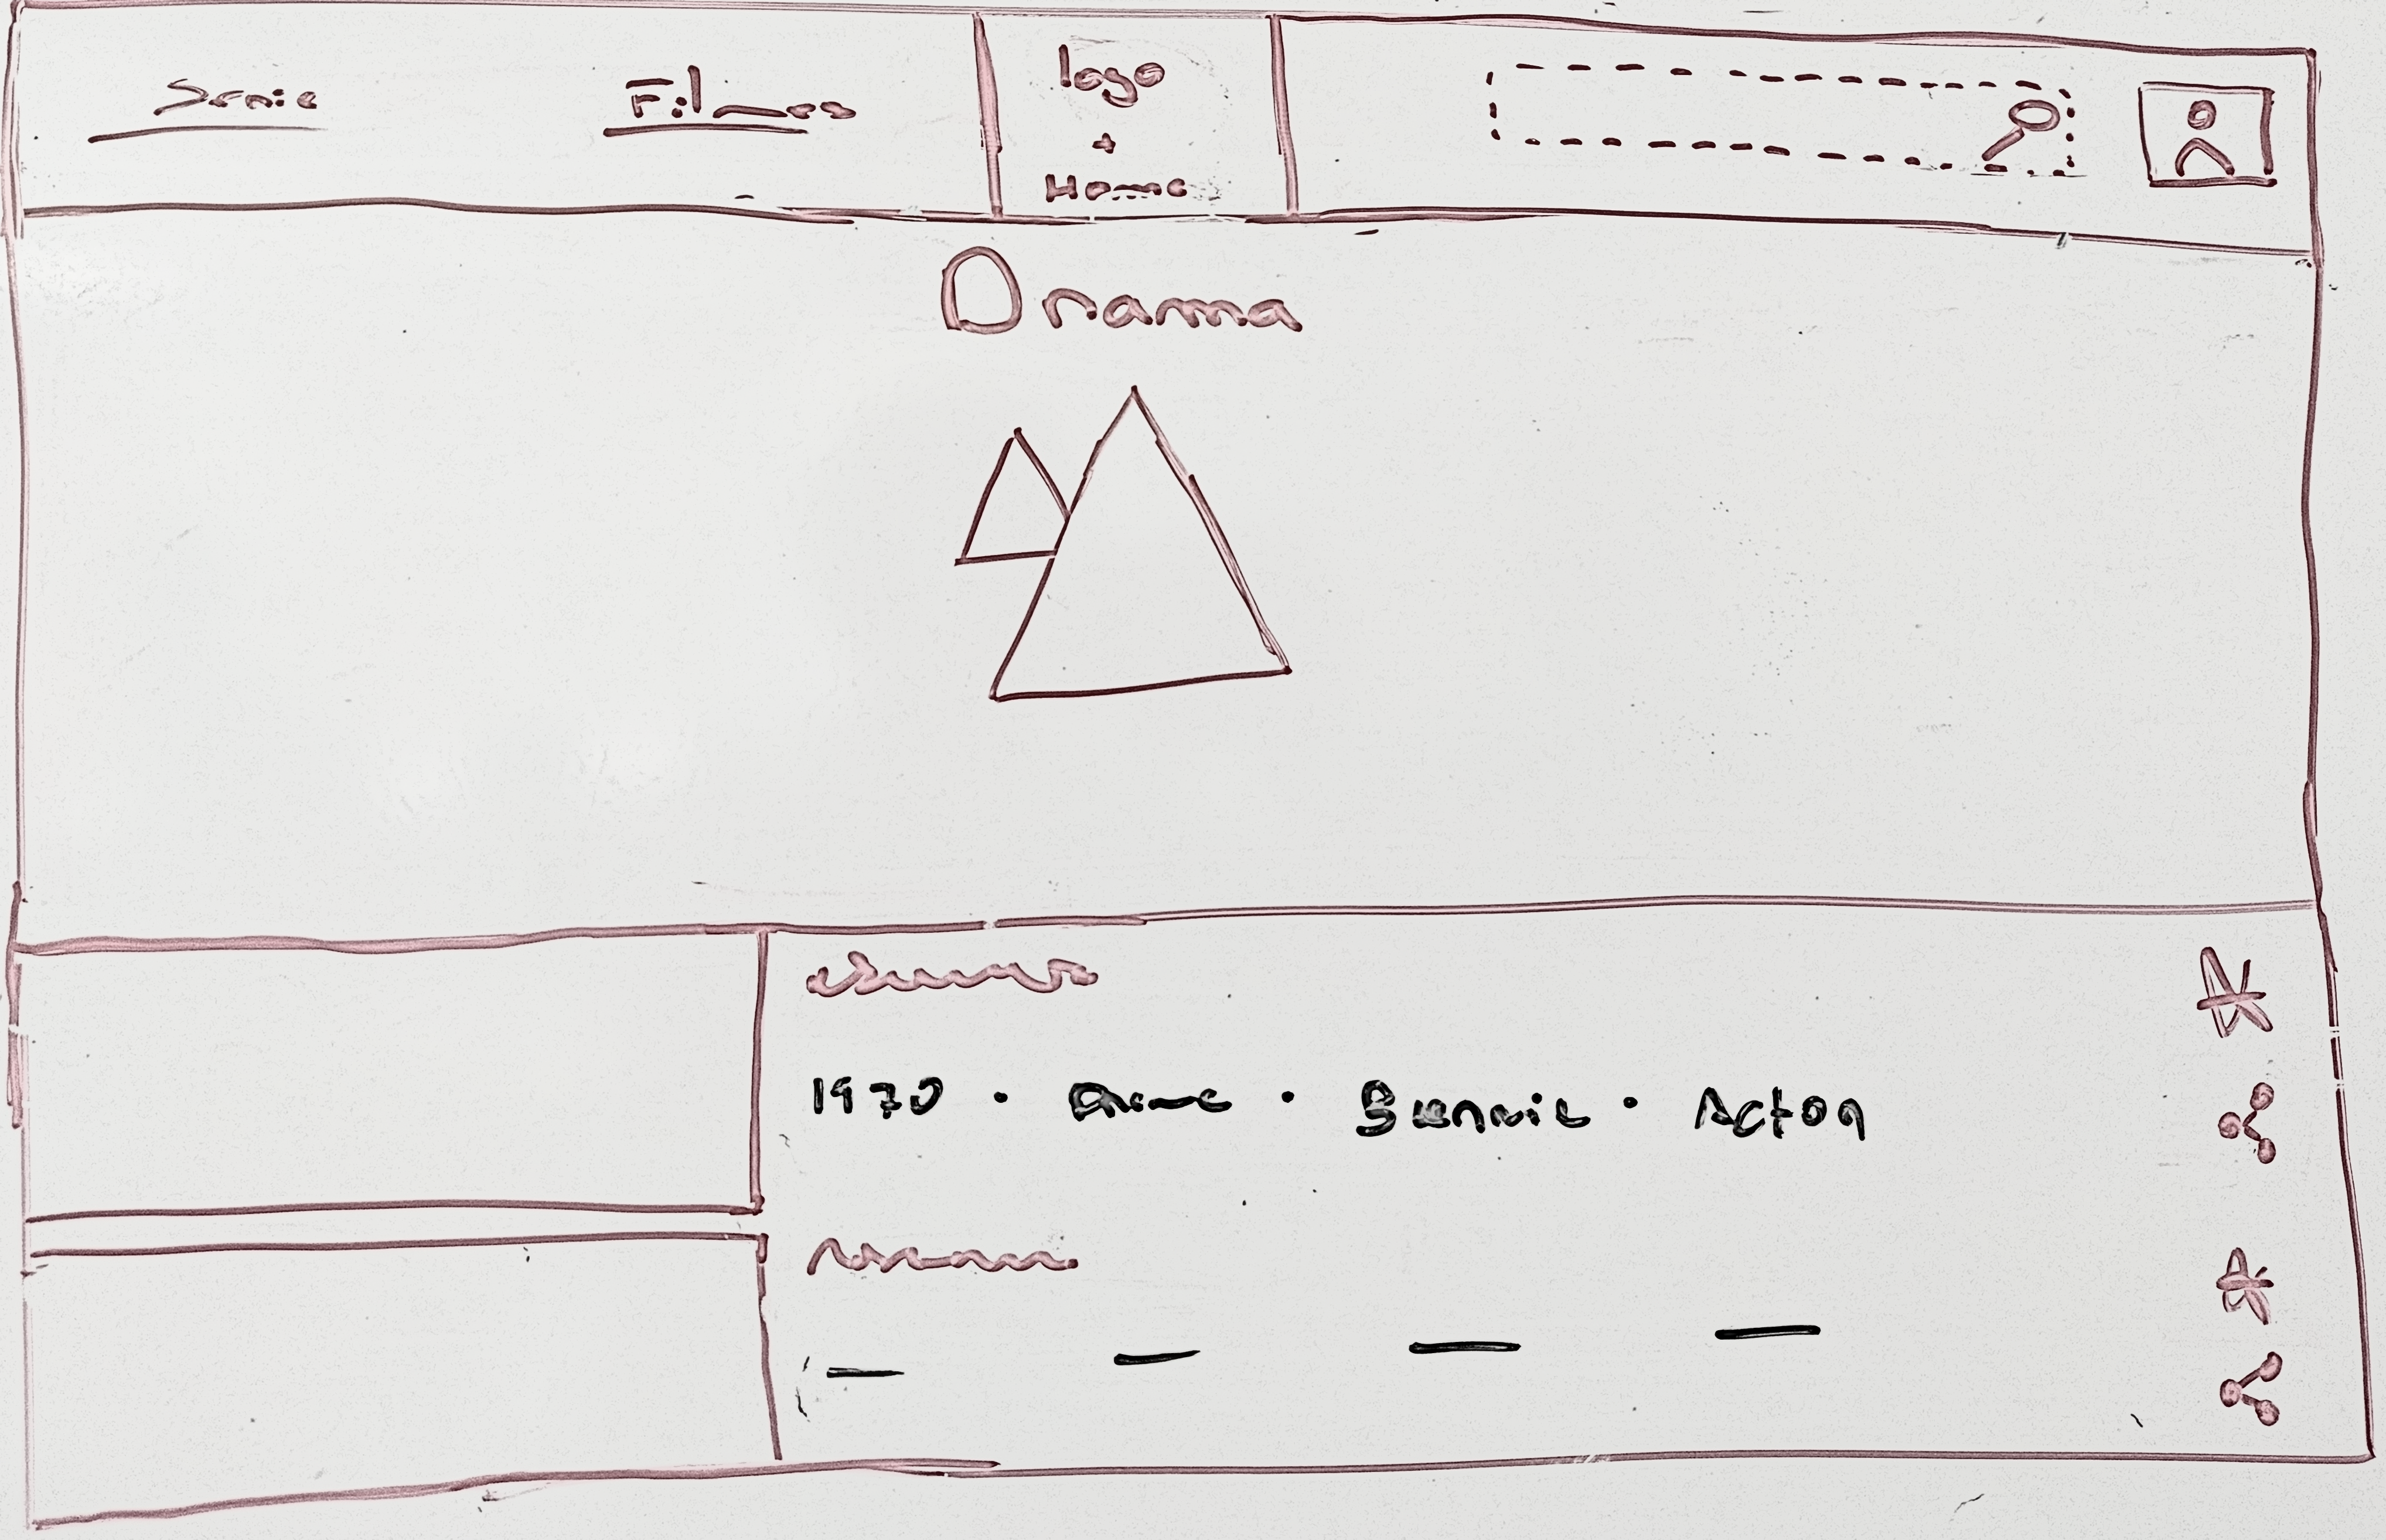 Serie
Filmes
logo
+
Home
Drama
1970 · · · Acton